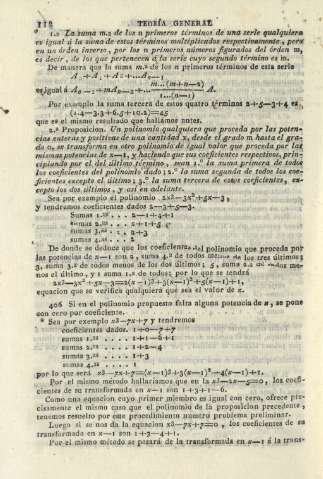 112 TEORÍA GENERAL
1.º La suma m.ª de los n primeros términos de una serie qualquiera
es igual á la suma de estos términos multiplicados respectivamente, pero
en un órden inverso, por los n primeros números figurados del órden m,
es decir, de los que pertenecen á la serie cuyo segundo término es m.
De manera que la suma m.ª de los n primeros términos de esta serie
es igual á
Por exemplo la suma tercera de estos quatro términos 2+5+3+4 es
(1.4+3.3+6.5+10.2)=45
que es el mismo resultado que hallámos antes.
2.ª Proposicion. Un polinomio qualquiera que proceda por las poten-
cias enteras y positivas de una cantidad x, desde el grado m hasta el gra-
do 0, se transforma en otro polinomio de igual valor que proceda por las
mismas potencias de x—1, y haciendo que sus coeficientes respectivos, prin-
cipiando por el del último término, sean 1.º la suma primera de todos
los coeficientes del polinomio dado; 2.º la suma segunda de todos los coe-
ficientes excepto el último; 3.º la suma tercera de estos coeficientes, ex-
cepto los dos últimos, y así en adelante.
Sea por exemplo el polinomio 2x³—3x²+5x—3,
y tendremos coeficientes dados 2—3+5—3.
Sumas 1.as ... 2—1+4+1
sumas 2.as ... 2+1+5
sumas 3.as ... 2+3
sumas 4.as ... 2
De donde se deduce que los coeficientes del polinomio que proceda por
las potencias de x—1 son 2, suma 4.ª de todos menos los tres últimos;
3, suma 3.ª de todos menos de los dos últimos; 5, suma 2.ª de todos me-
nos el último, y 1 suma 1.ª de todos; por lo que se tendrá
2x³—3x²+5x—3=2(x—1)³+3(x—1)²+5(x—1)+1,
equacion que se verifica qualquiera que sea el valor de x.
406 Si en el polinomio propuesto falta alguna potencia de x, se pone
con cero por coeficiente.
Sea por exemplo x³—7x+7 y tendremos
coeficientes dados. 1+0—7+7
sumas 1.as .... 1+1—6+1
sumas 2.as .... 1+2—4
sumas 3.as .... 1+3
sumas 4.as .... 1
por lo que será x³—7x+7=(x—1)³+3(x—1)²—4(x—1)+1.
Por el mismo método hallariamos que en la x³—2x—5=0, los coefi-
cientes de su transformada en x—1 son 1+3+1—6.
Como una equacion cuyo primer miembro es igual con cero, ofrece pre-
cisamente el mismo caso que el polinomio de la proposicion precedente,
tenemos resuelto por este procedimiento nuestro problema preliminar.
Luego si se nos da la equacion x³—7x+7=0, los coeficientes de su
transformada en x—1 son 1+3—4+1.
Por el mismo método se pasará de la transformada en x—1 á la trans-